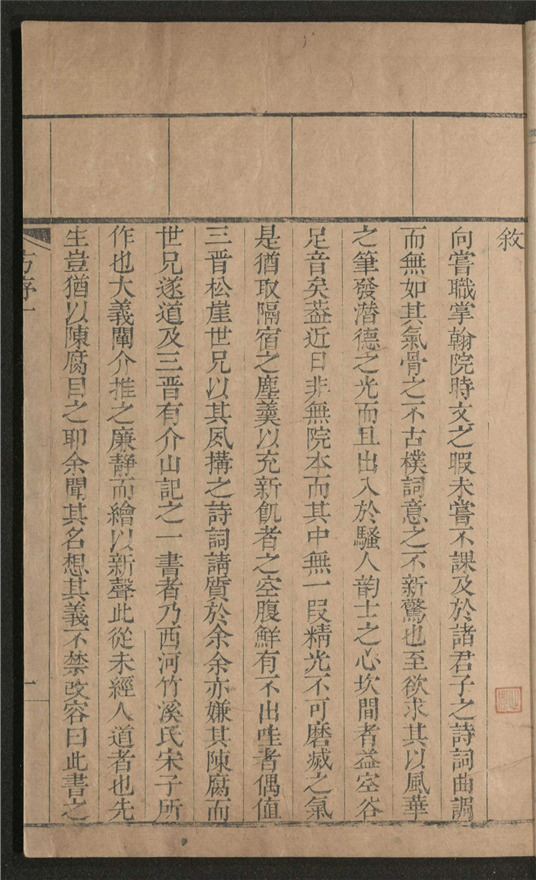 敘
向嘗職掌翰院時文之暇未嘗不課及於諸君子之詩詞曲調
而無如其氣骨之不古樸詞意之不新驚也至欲求其以風華
之筆發潛德之光而且出入於騷人韵士之心坎間者益空谷
足音矣葢近日非無院本而其中無一段精光不可磨滅之氣
是猶取隔宿之塵羹以充新飢者之空腹鮮有不出哇者偶值
三晋松崖世兄以其夙搆之詩詞請質於余余亦嫌其陳腐而
世兄遂道及三晋有介山記之一書者乃西河竹溪氏宋子所
作也大義闡介推之廉靜而繪以新聲此從未經人道者也先
生豈猶以陳腐目之耶余聞其名想其義不禁改容曰此書之
序一
一